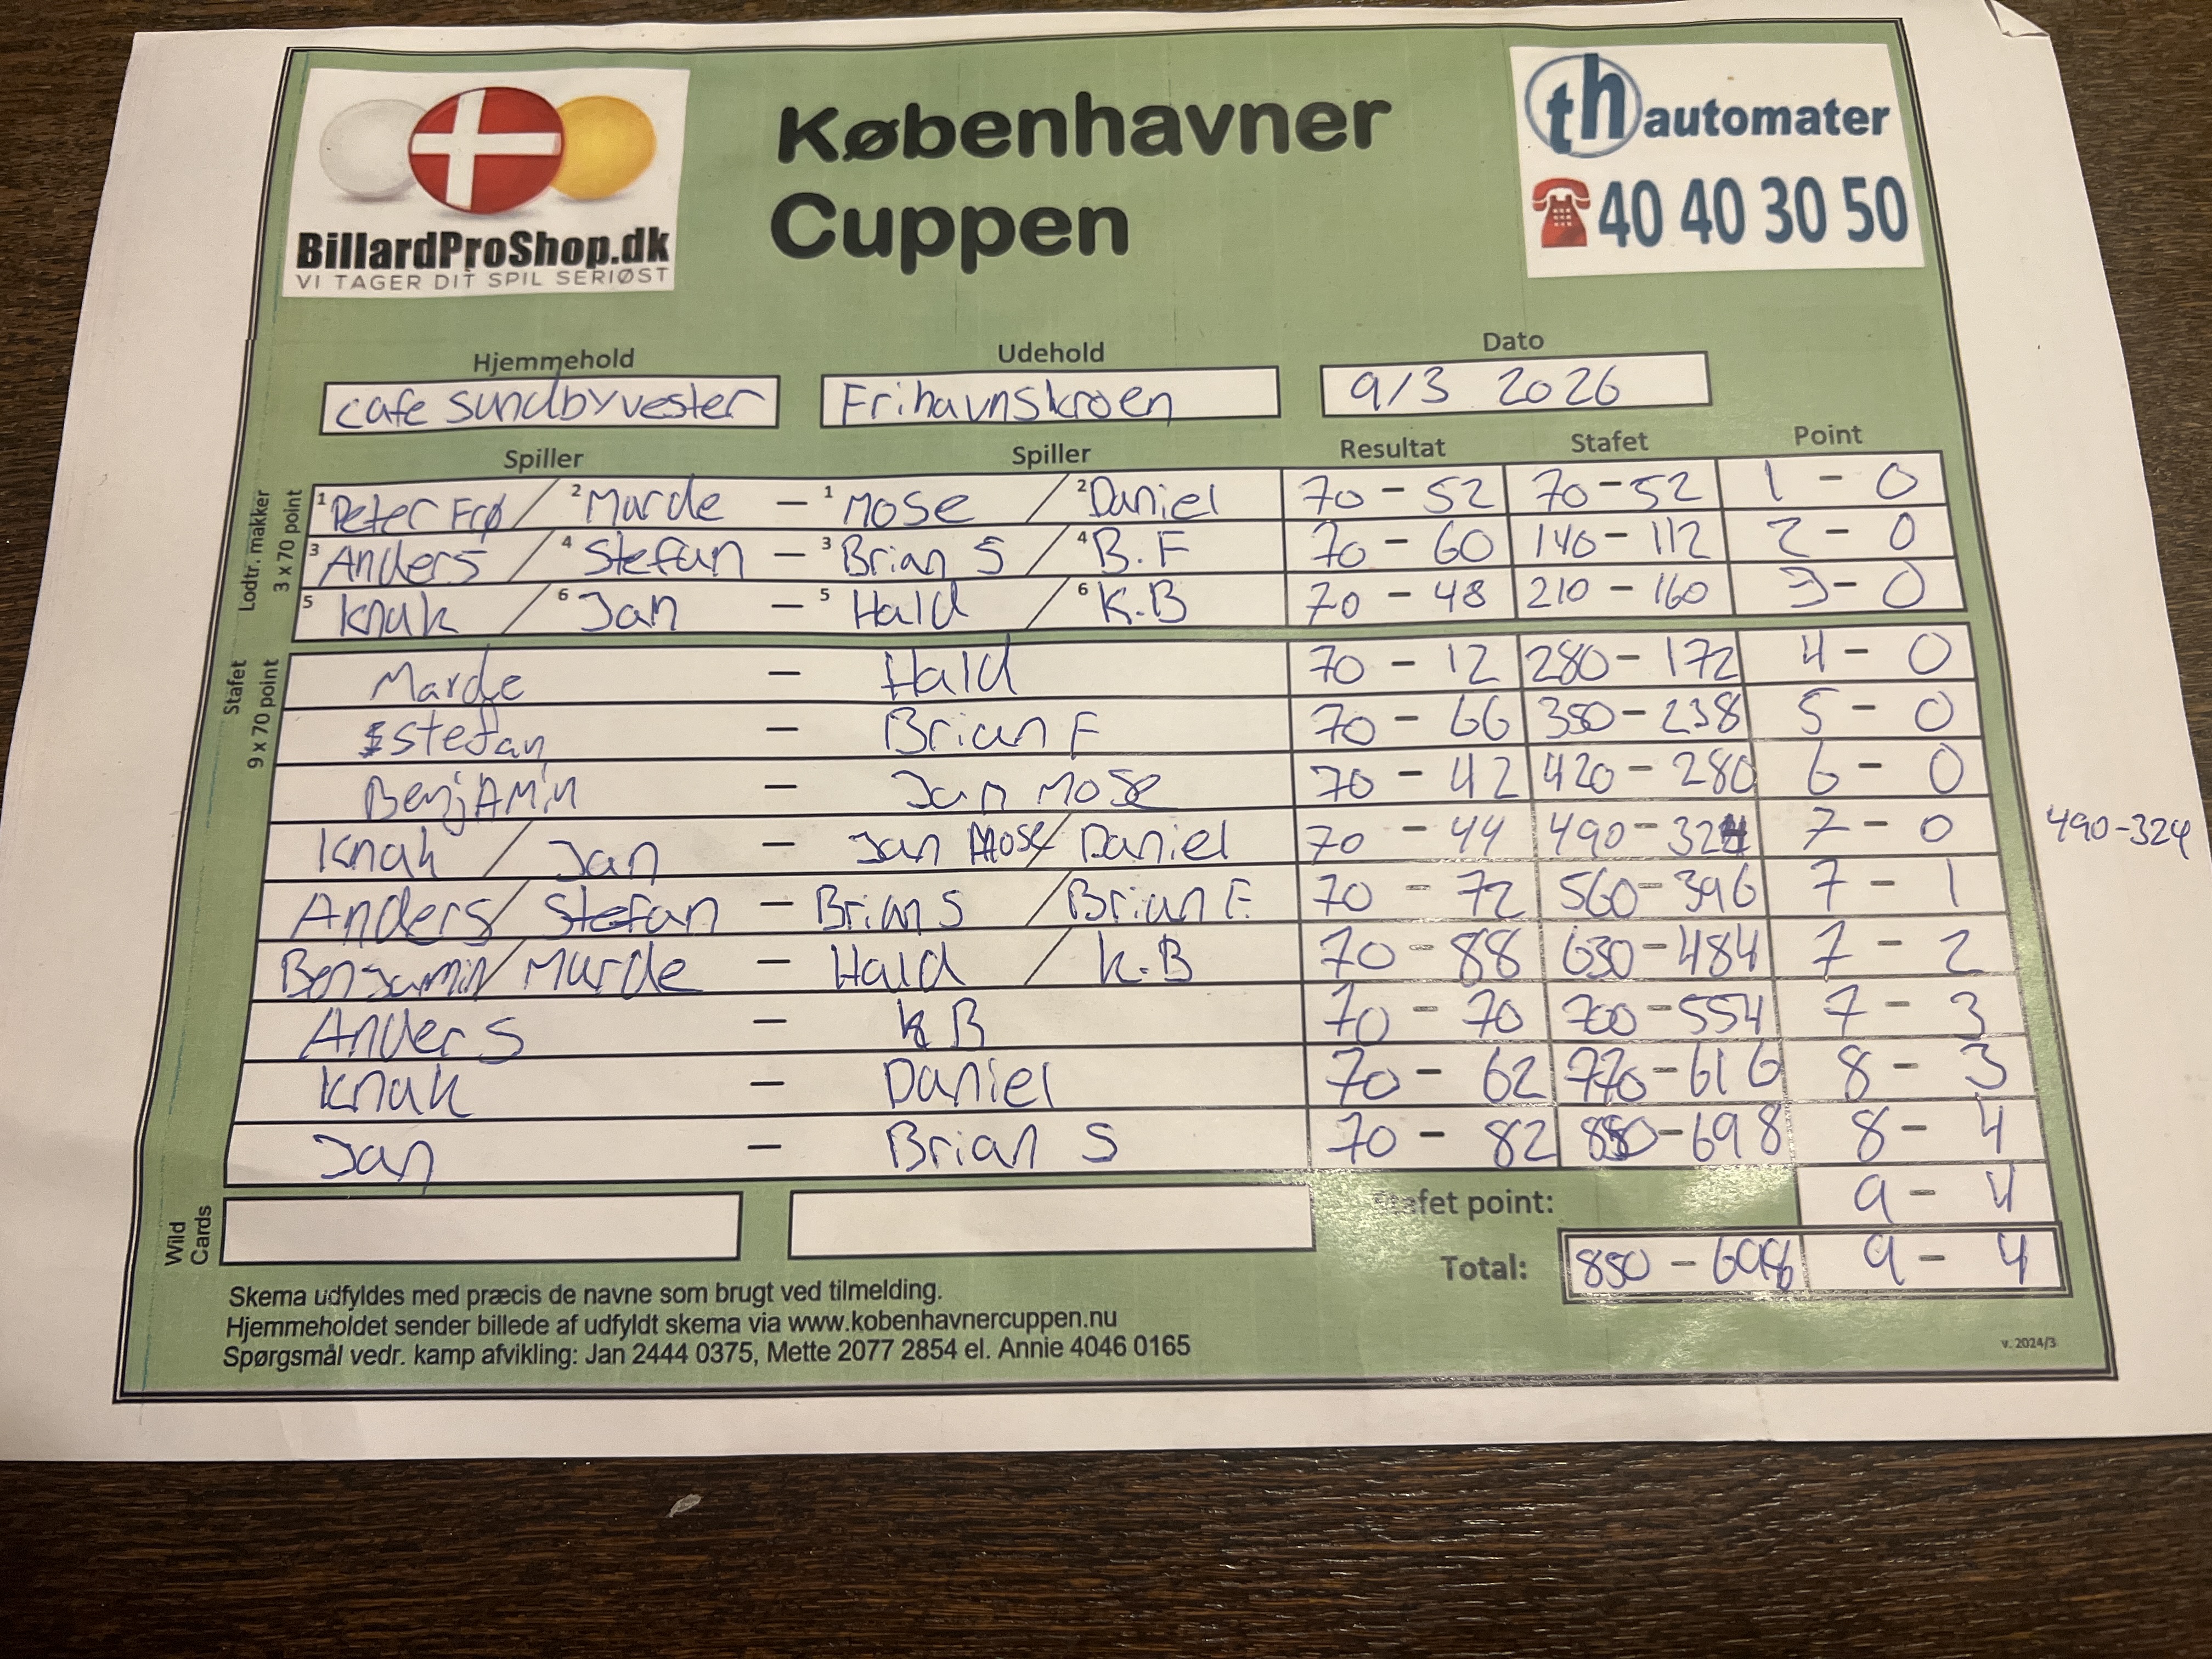 BillardProShop.dk
VI TAGER DIT SPIL SERIØST
Københavner
Cuppen
th automater
40 40 30 50
Hjemmehold Udehold Dato
cafe sundbyvester Frihavnskroen 9/3 2026
Spiller Spiller Resultat Stafet Point
Lodtr. makker
3 x 70 point
1 Peter Frø / 2 Marde - 1 Mose / 2 Daniel 70 - 52 70-52 1 - 0
3 Anders / 4 Stefan - 3 Brian S / 4 B.F 70 - 60 140 - 112 2 - 0
5 Knak / 6 Jan - 5 Hald / 6 K.B 70 - 48 210 - 160 3 - 0
Stafet
9 x 70 point
Marde - Hald 70 - 12 280 - 172 4 - 0
Stefan - Brian F 70 - 66 350 - 238 5 - 0
BenjAmin - Jan Mose 70 - 42 420 - 280 6 - 0
Knak / Jan - Jan Mose / Daniel 70 - 44 490 - 324 7 - 0 490-324
Anders / Stefan - Brian S / Brian F. 70 - 72 560 - 396 7 - 1
Benjamin / Marde - Hald / K.B 70 - 88 630 - 484 7 - 2
Anders - KB 70 - 70 700 - 554 7 - 3
Knak - Daniel 70 - 62 770 - 616 8 - 3
Jan - Brian S 70 - 82 850 - 698 8 - 4
Wild
Cards
Stafet point: 9 - 4
Total: 850 - 698 9 - 4
Skema udfyldes med præcis de navne som brugt ved tilmelding.
Hjemmeholdet sender billede af udfyldt skema via www.kobenhavnercuppen.nu
Spørgsmål vedr. kamp afvikling: Jan 2444 0375, Mette 2077 2854 el. Annie 4046 0165
v. 2024/3